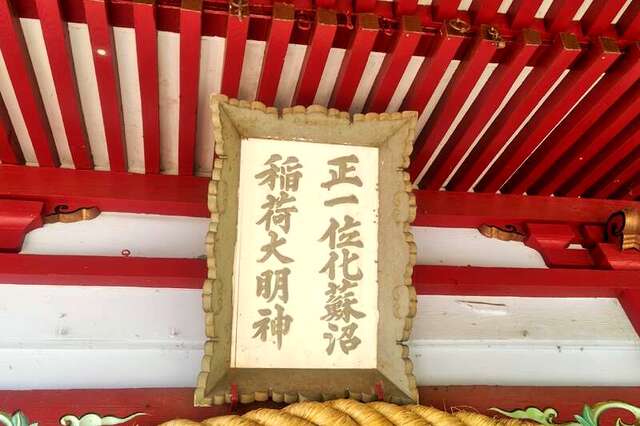 正一位化蘇沼
稲荷大明神